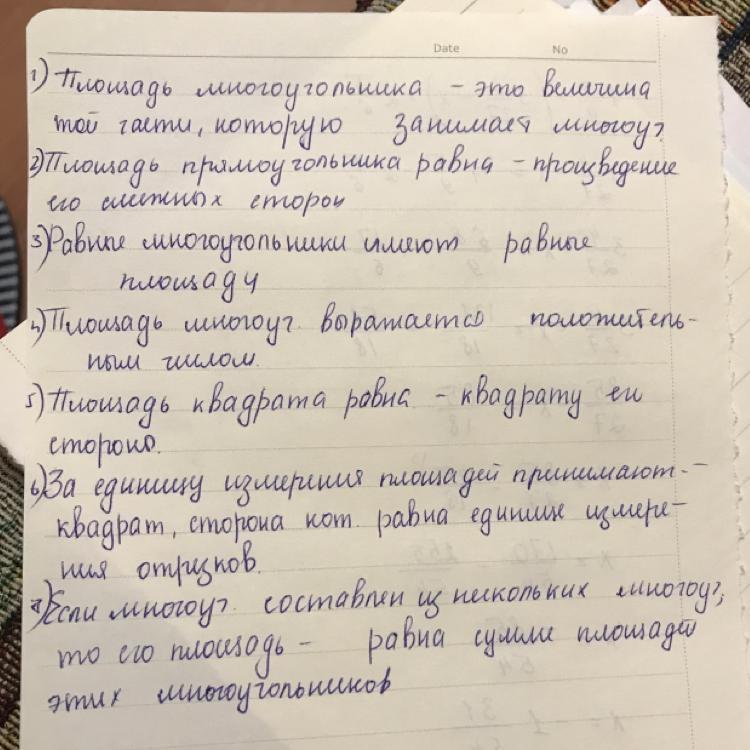 Date No
1) Площадь многоугольника - это величина
той части, которую занимает многоуг.
2) Площадь прямоугольника равна - произведение
его смежных сторон
3) Равные многоугольники имеют равные
площади
4) Площадь многоуг. выражается положитель-
ным числом.
5) Площадь квадрата равна - квадрату ей
стороны.
6) За единицу измерения площадей принимают -
квадрат, сторона кот. равна единице измере-
ния отрезков.
7) Если многоуг. составлен из нескольких многоуг,
то его площадь - равна сумме площадей
этих многоугольников